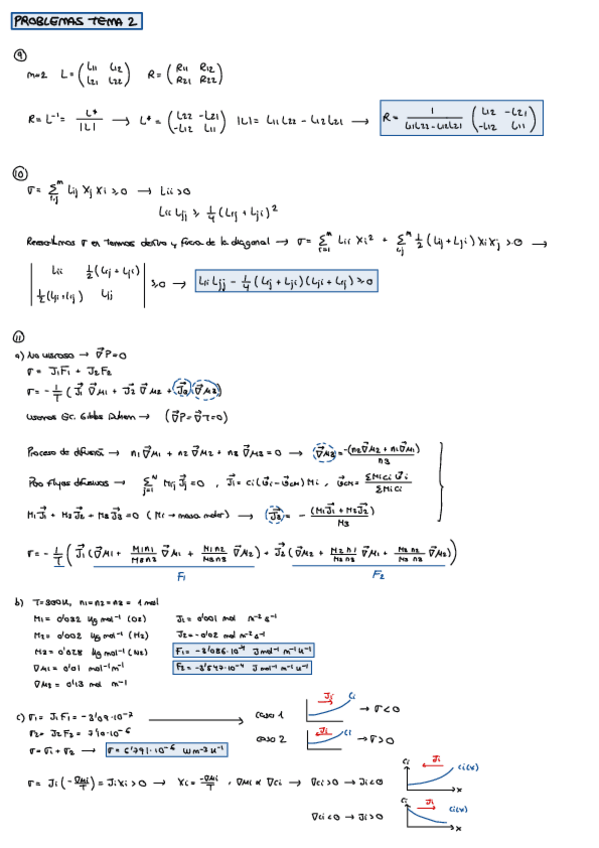 PROBLEMAS TEMA 2
9
m=2 L = (L11 L12 / L21 L22) R = (R11 R12 / R21 R22)
R = L⁻¹ = L* / |L| → L* = (L22 -L21 / -L12 L11) |L| = L11 L22 - L12 L21 → R = 1 / (L11L22 - L12L21) (L12 -L21 / -L12 L11)
10
σ = Σ Lij Xj Xi ≥ 0 → Lii > 0
Lii Ljj ≥ 1/4 (Lij + Lji)²
σ en términos dentro y fuera de la diagonal → σ = Σ Lii Xi² + Σ 1/2 (Lij + Lji) Xi Xj > 0 →
| Lii 1/2 (Lij + Lji) / 1/2 (Lji + Lij) Ljj | ≥ 0 → Lii Ljj - 1/4 (Lij + Lji)(Lji + Lij) ≥ 0
11
a) No viscoso → ∇P = 0
σ = J1F1 + J2F2
σ = -1/T (J1 ∇μ1 + J2 ∇μ2 + J3 ∇μ3)
Usamos Ec. Gibbs Duhem → (∇P = ∇T = 0)
Proceso de difusión → n1∇μ1 + n2∇μ2 + n3∇μ3 = 0 → ∇μ3 = -(n2∇μ2 + n1∇μ1) / n3
Para flujos difusivos → Σ Mj Jj = 0 , Ji = ci(vi - vcm) Mi , vcm = ΣMici vi / ΣMici
M1J1 + M2J2 + M3J3 = 0 (Mi → masa molar) → J3 = - (M1J1 + M2J2) / M3
σ = -1/T (J1 (∇μ1 + M1n1/M3n3 ∇μ1 + M1n2/M3n3 ∇μ2) + J2 (∇μ2 + M2n1/M3n3 ∇μ1 + M2n2/M3n3 ∇μ2))
F1 F2
b) T=300K, n1=n2=n3 = 1 mol
M1 = 0'032 kg mol⁻¹ (O2) J1 = 0'001 mol m⁻² s⁻¹
M2 = 0'002 kg mol⁻¹ (H2) J2 = -0'02 mol m⁻² s⁻¹
M3 = 0'028 kg mol⁻¹ (N2) F1 = -3'086·10⁻⁴ J mol⁻¹ m⁻¹ K⁻¹
∇μ1 = 0'01 mol⁻¹ m⁻¹ F2 = -3'547·10⁻⁴ J mol⁻¹ m⁻¹ K⁻¹
∇μ2 = 0'13 mol m⁻¹
c) σ1 = J1 F1 = -3'09·10⁻⁷ → caso 1 Ji ci → σ < 0
σ2 = J2 F2 = 7'10·10⁻⁶ caso 2 Ji ci → σ > 0
σ = σ1 + σ2 → σ = 6'791·10⁻⁶ W m⁻³ K⁻¹
σ = Ji (-∇μi/T) = Ji Xi > 0 → Xi = -∇μi/T , ∇μi ∝ ∇ci → ∇ci > 0 → Ji < 0 ci Ji ci(x) x
∇ci < 0 → Ji > 0 ci Ji ci(x) x